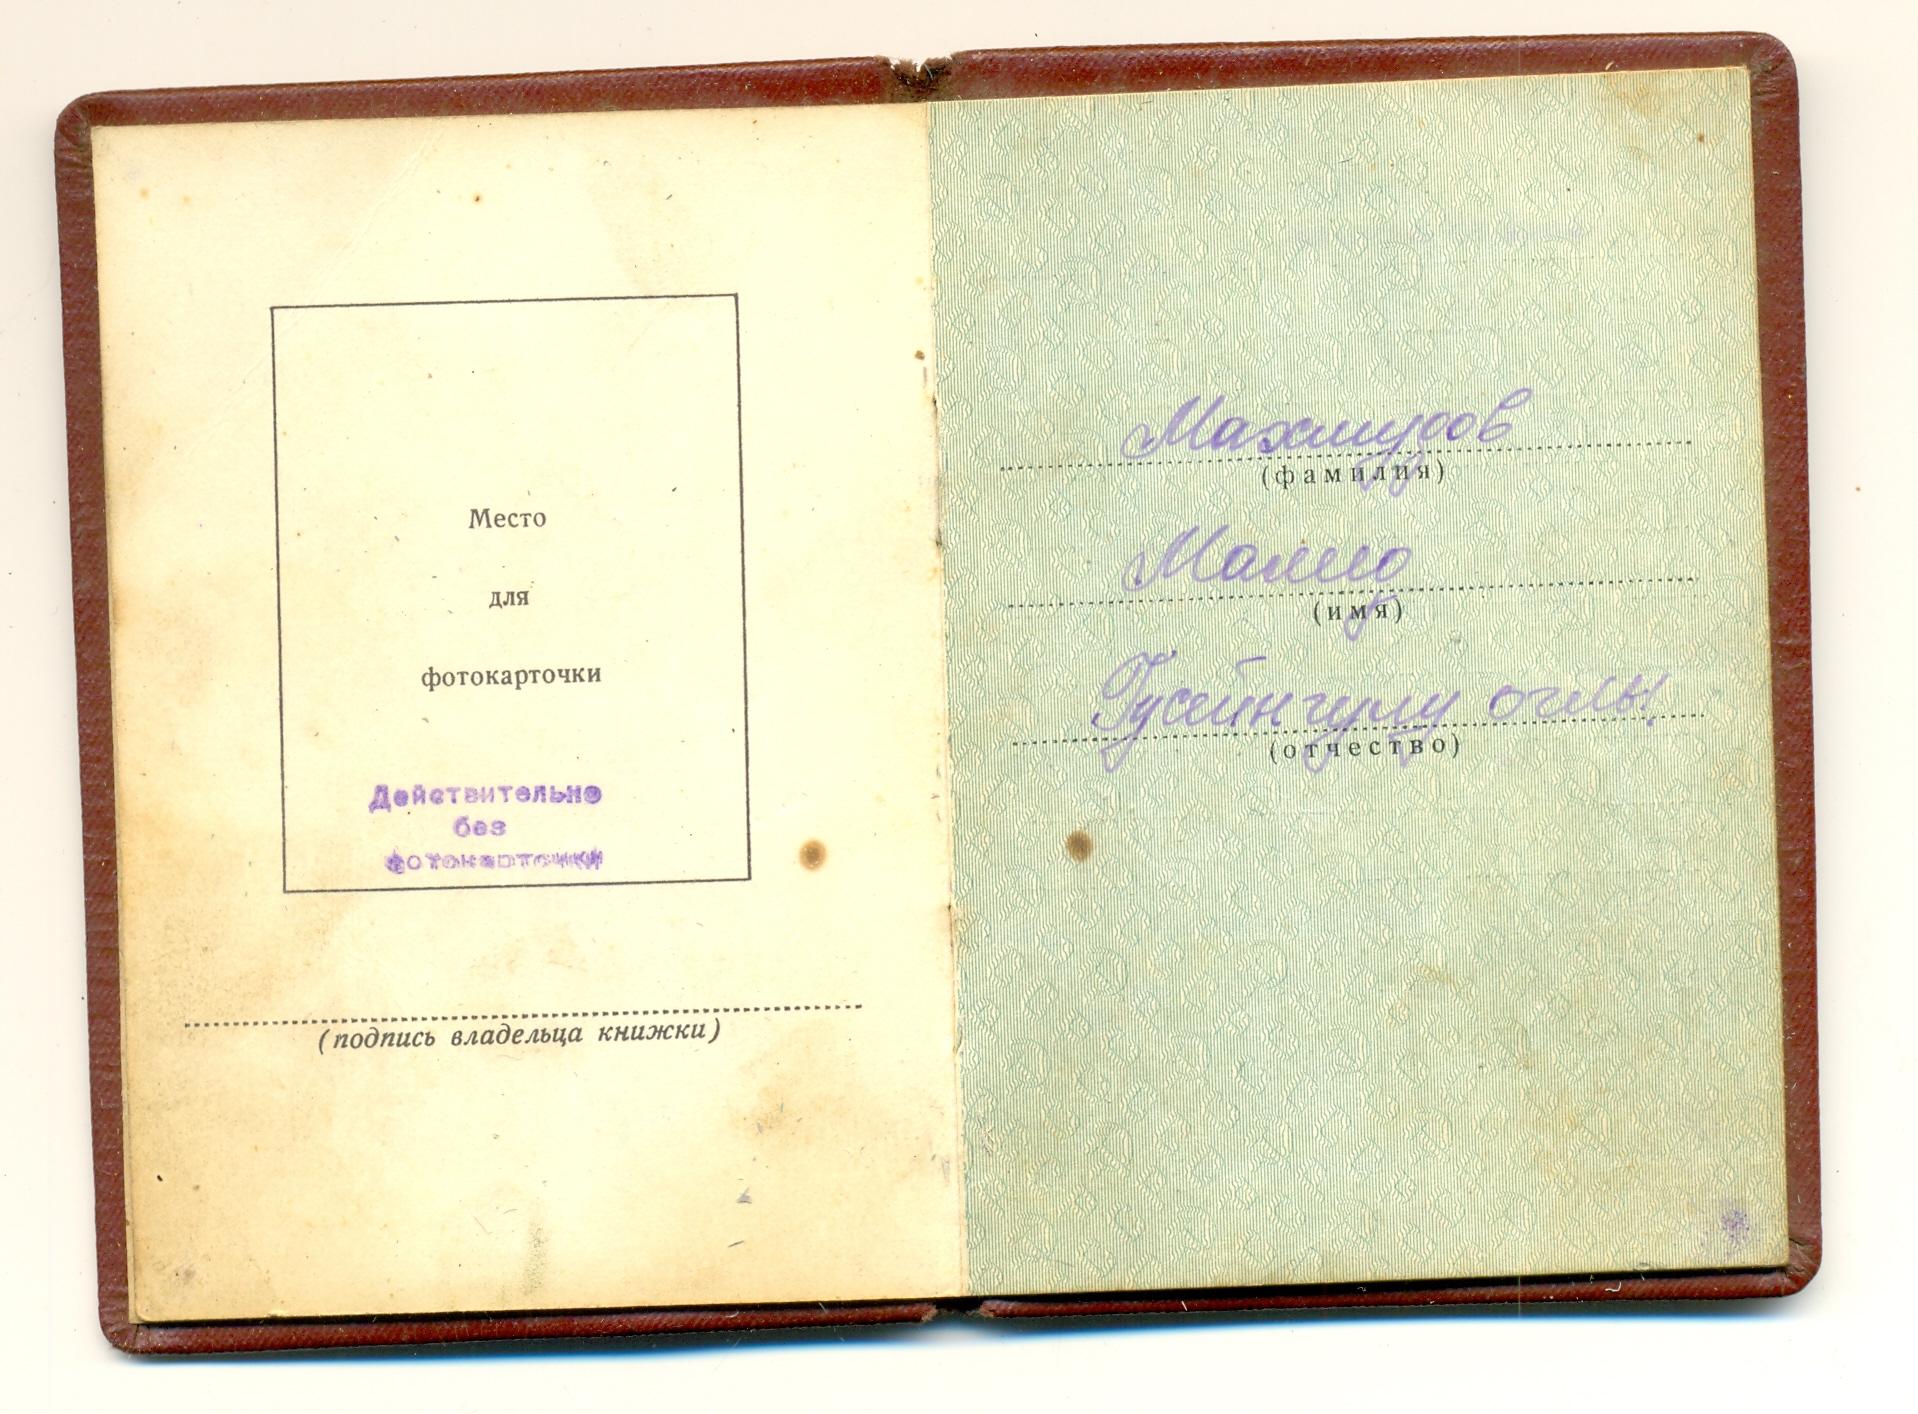 Место
для
фотокарточки
Действительно
без
фотокарточки
(подпись владельца книжки)
Махмудов
(фамилия)
(имя)
Гусейнгулу оглы
(отчество)